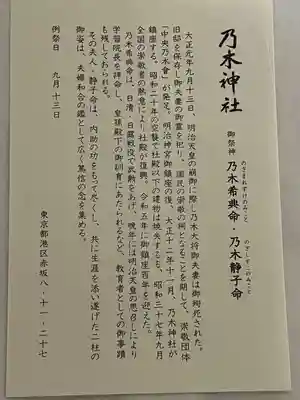 乃木神社
御祭神 乃木希典命・乃木静子命
のぎまれすけのみこと
のぎしずこのみこと
大正元年九月十三日、明治天皇の崩御に際し乃木大将御夫妻は御殉死された。
旧邸を保存し御夫妻の御霊を祀り、国民の崇敬の祠となることを期して、崇敬団体
「中央乃木會」が発足。明治神宮御鎮座の後、大正十二年十一月、乃木神社が
鎮座する。昭和二十年の空襲で社殿以下の建物は焼失すると、昭和三十七年九月
全国の崇敬者の熱意により社殿が復興。令和五年に御鎮座百年を迎えた。
乃木希典命は、日清・日露戦役で武勲をあげ、晩年には明治天皇の思召しにより
学習院長を拝命し、皇孫殿下の御訓育にあたられるなど、教育者としての御事蹟
も残しておられる。
その夫人・静子命は、内助の功をもって尽くし、共に生涯を添い遂げた二柱の
御姿は、夫婦和合の鑑として広く篤信の念を集める。
例祭日 九月十三日
東京都港区赤坂八・十一・二十七